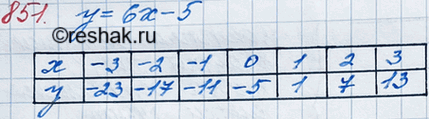 851. y = 6x - 5
©reshak.ru
x -3 -2 -1 0 1 2 3
y -23 -17 -11 -5 1 7 13